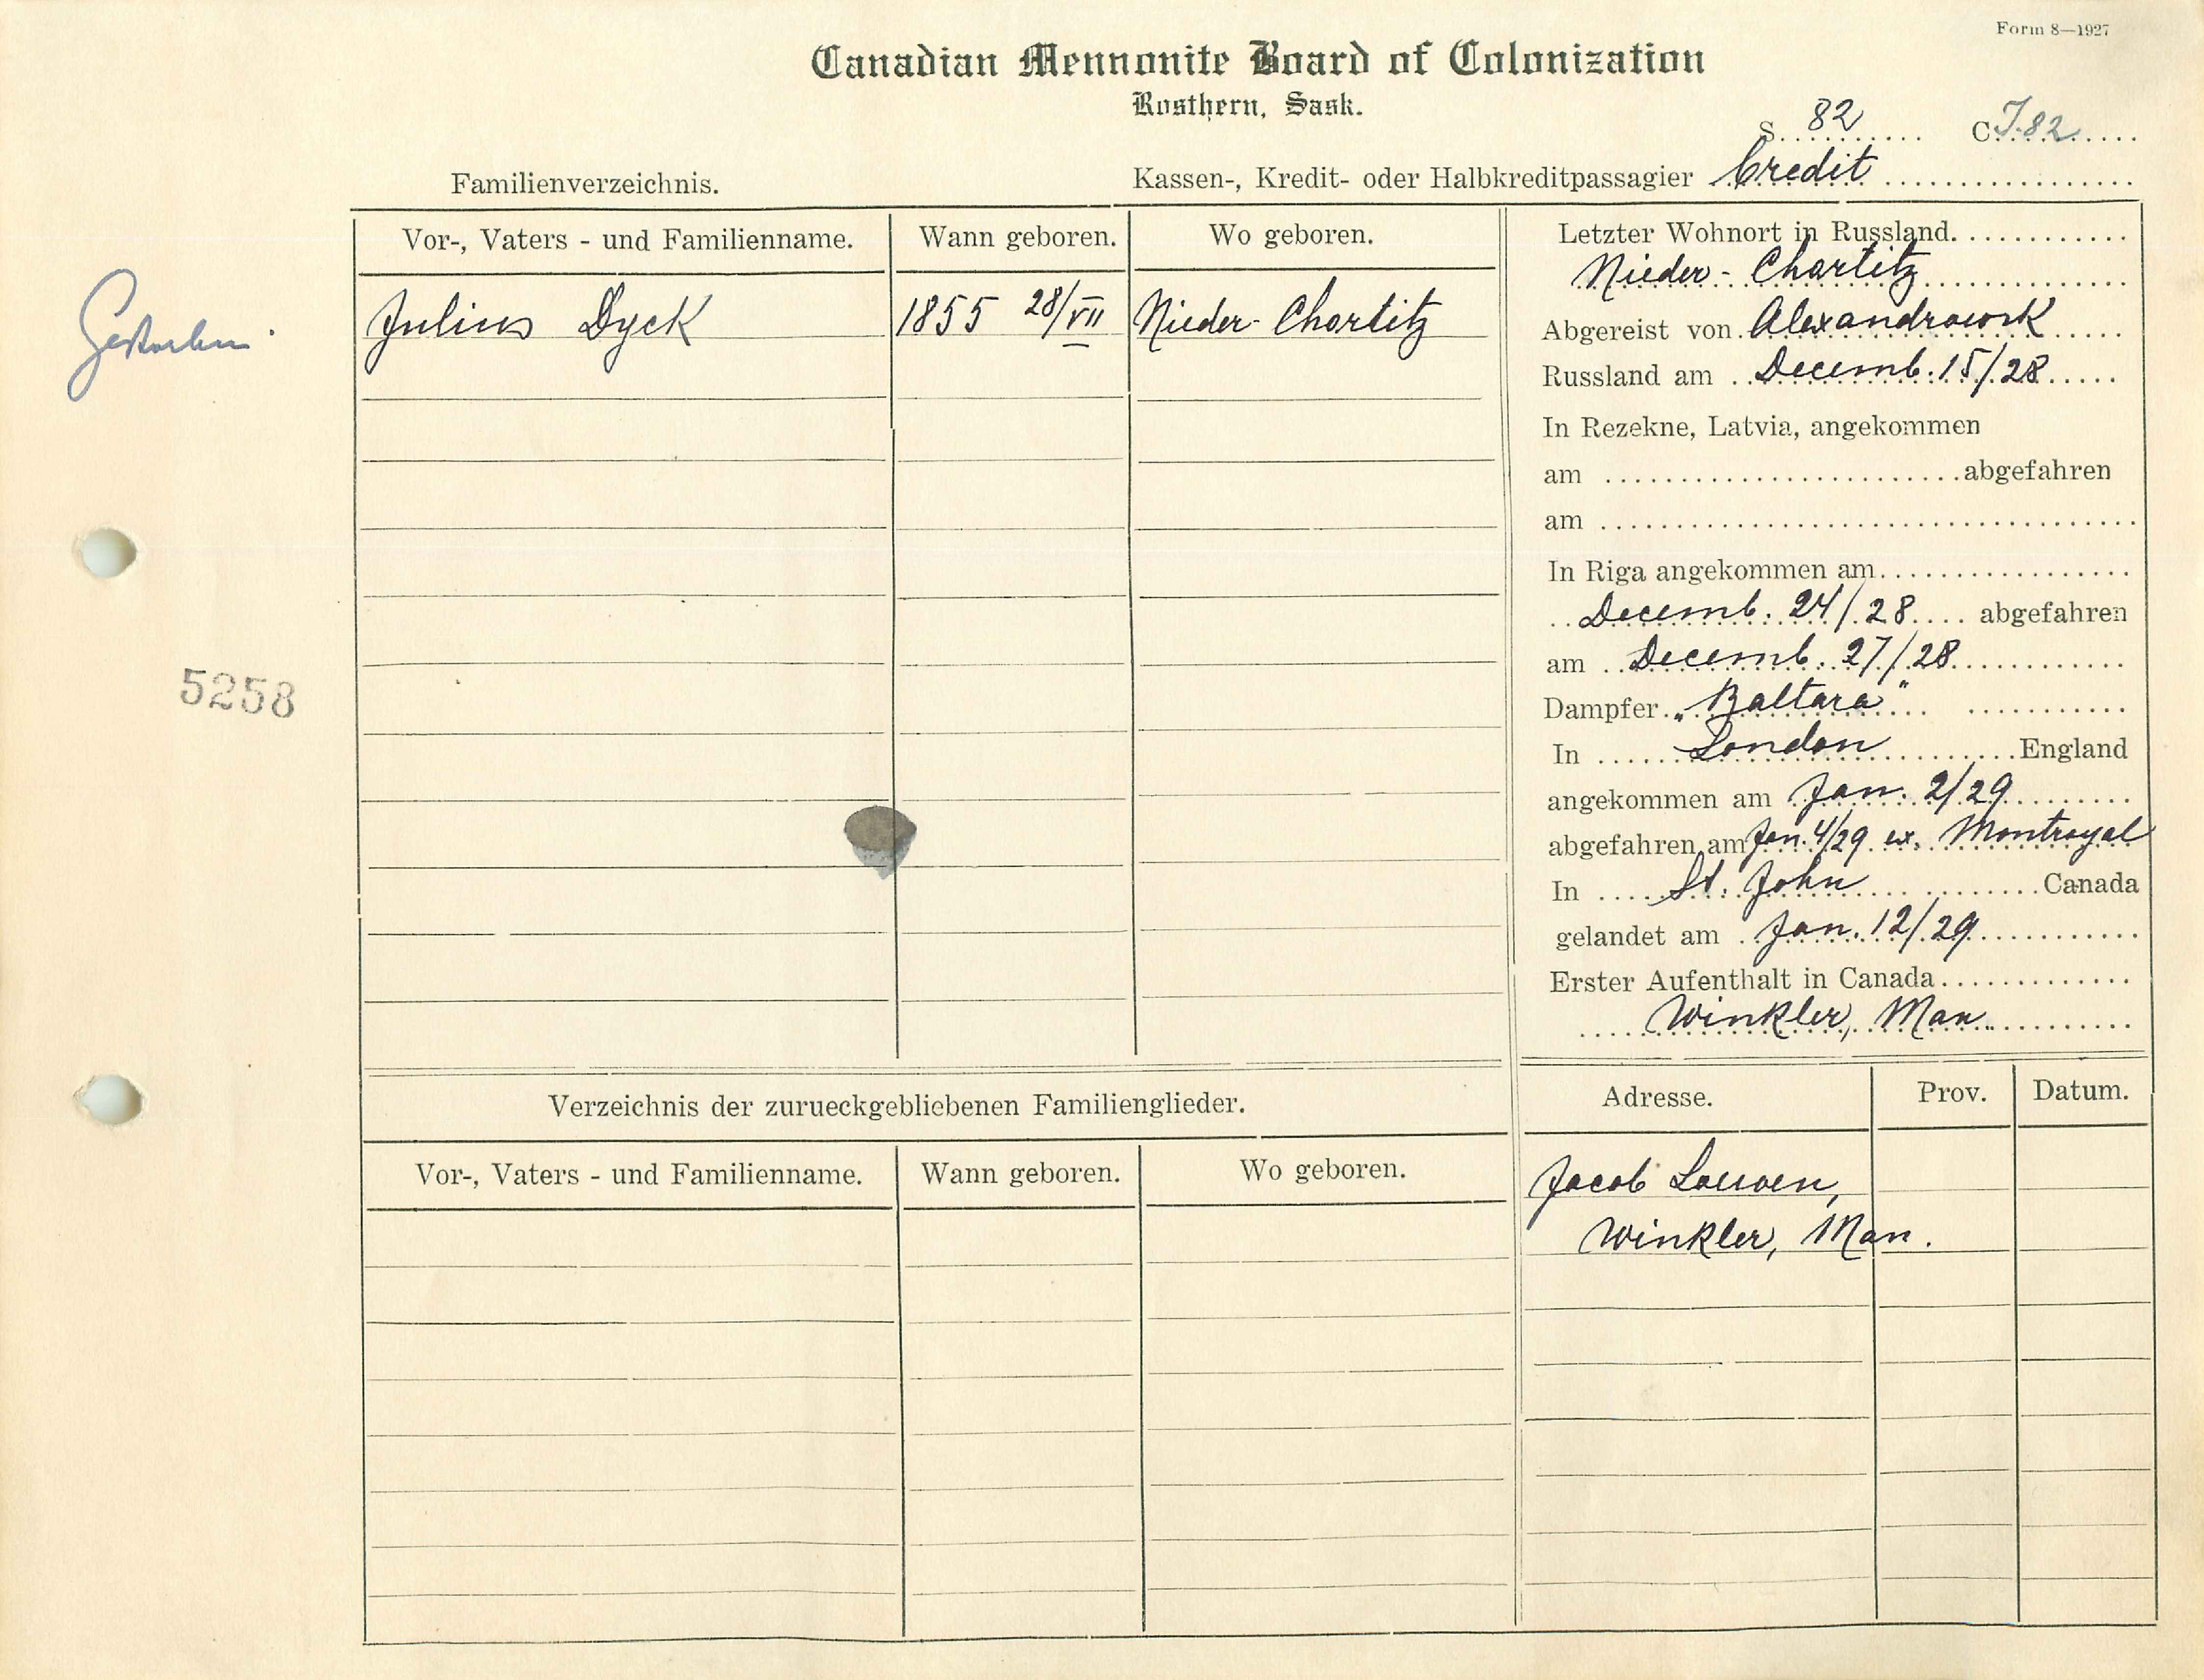 Form 8—1927
Canadian Mennonite Board of Colonization
Rosthern, Sask.
S. 82 C J.82
Familienverzeichnis.
Kassen-, Kredit- oder Halbkreditpassagier Credit
Vor-, Vaters - und Familienname. Wann geboren. Wo geboren.
Gestorben.
Julius Dyck 1855 28/VII Nieder-Chortitz
5258
Letzter Wohnort in Russland.
Nieder-Chortitz
Abgereist von Alexandrowsk
Russland am Decemb. 15/28
In Rezekne, Latvia, angekommen
am abgefahren
am
In Riga angekommen am
Decemb. 24/28 abgefahren
am Decemb. 27/28
Dampfer „Baltara"
In London England
angekommen am Jan. 2/29
abgefahren am Jan. 4/29 ex. Montroyal
In St. John Canada
gelandet am Jan. 12/29
Erster Aufenthalt in Canada
Winkler, Man.
Verzeichnis der zurueckgebliebenen Familienglieder.
Vor-, Vaters - und Familienname. Wann geboren. Wo geboren.
Adresse. Prov. Datum.
Jacob Loewen,
Winkler, Man.